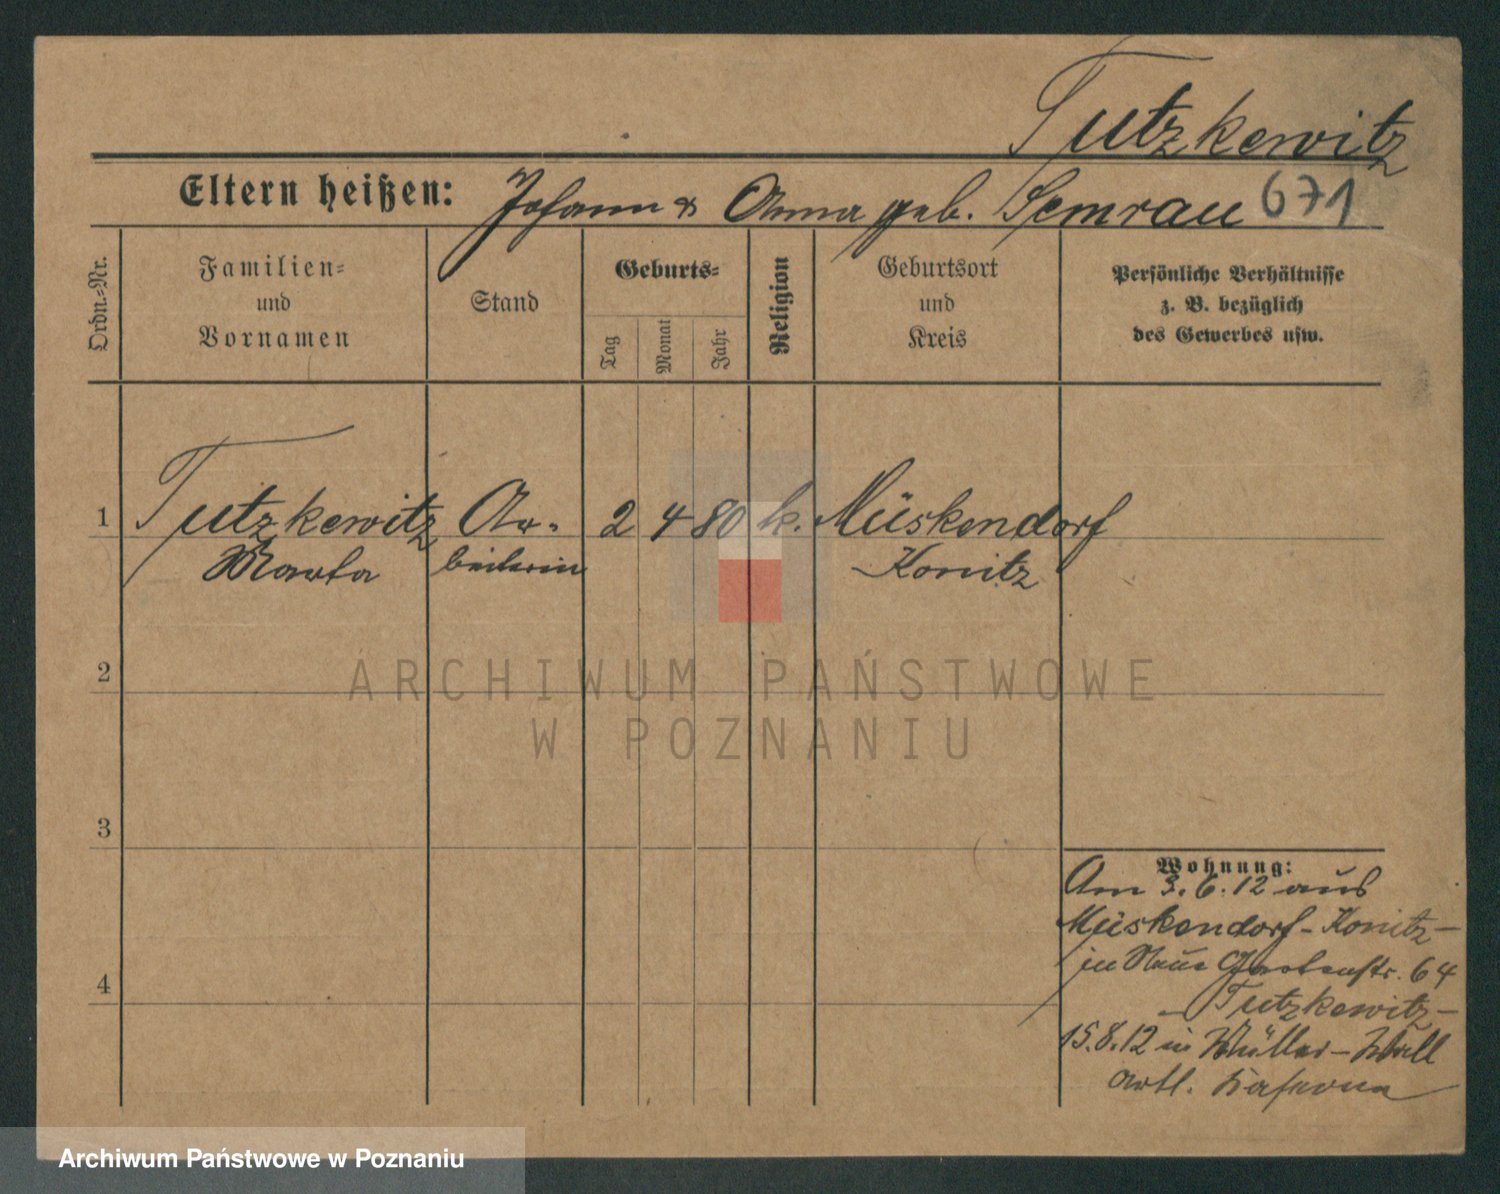 Tutzkewitz
Eltern heißen: Johann & Anna geb. Semrau 671
Ordn.-Nr.
Familien-
und
Vornamen
Stand
Geburts-
Tag
Monat
Jahr
Religion
Geburtsort
und
Kreis
Persönliche Verhältnisse
z. B. bezüglich
des Gewerbes usw.
1 Tutzkewitz Ar- 2 4 80 k. Müskendorf
Marta beiterin Konitz
2
3
4
Wohnung:
Am 3.6.12 aus
Müskendorf - Konitz -
in Neue Gartenstr. 64
- Tutzkewitz -
15.8.12 in Müller-Wall
Artl. Kaserne
ARCHIWUM PAŃSTWOWE
W POZNANIU
Archiwum Państwowe w Poznaniu